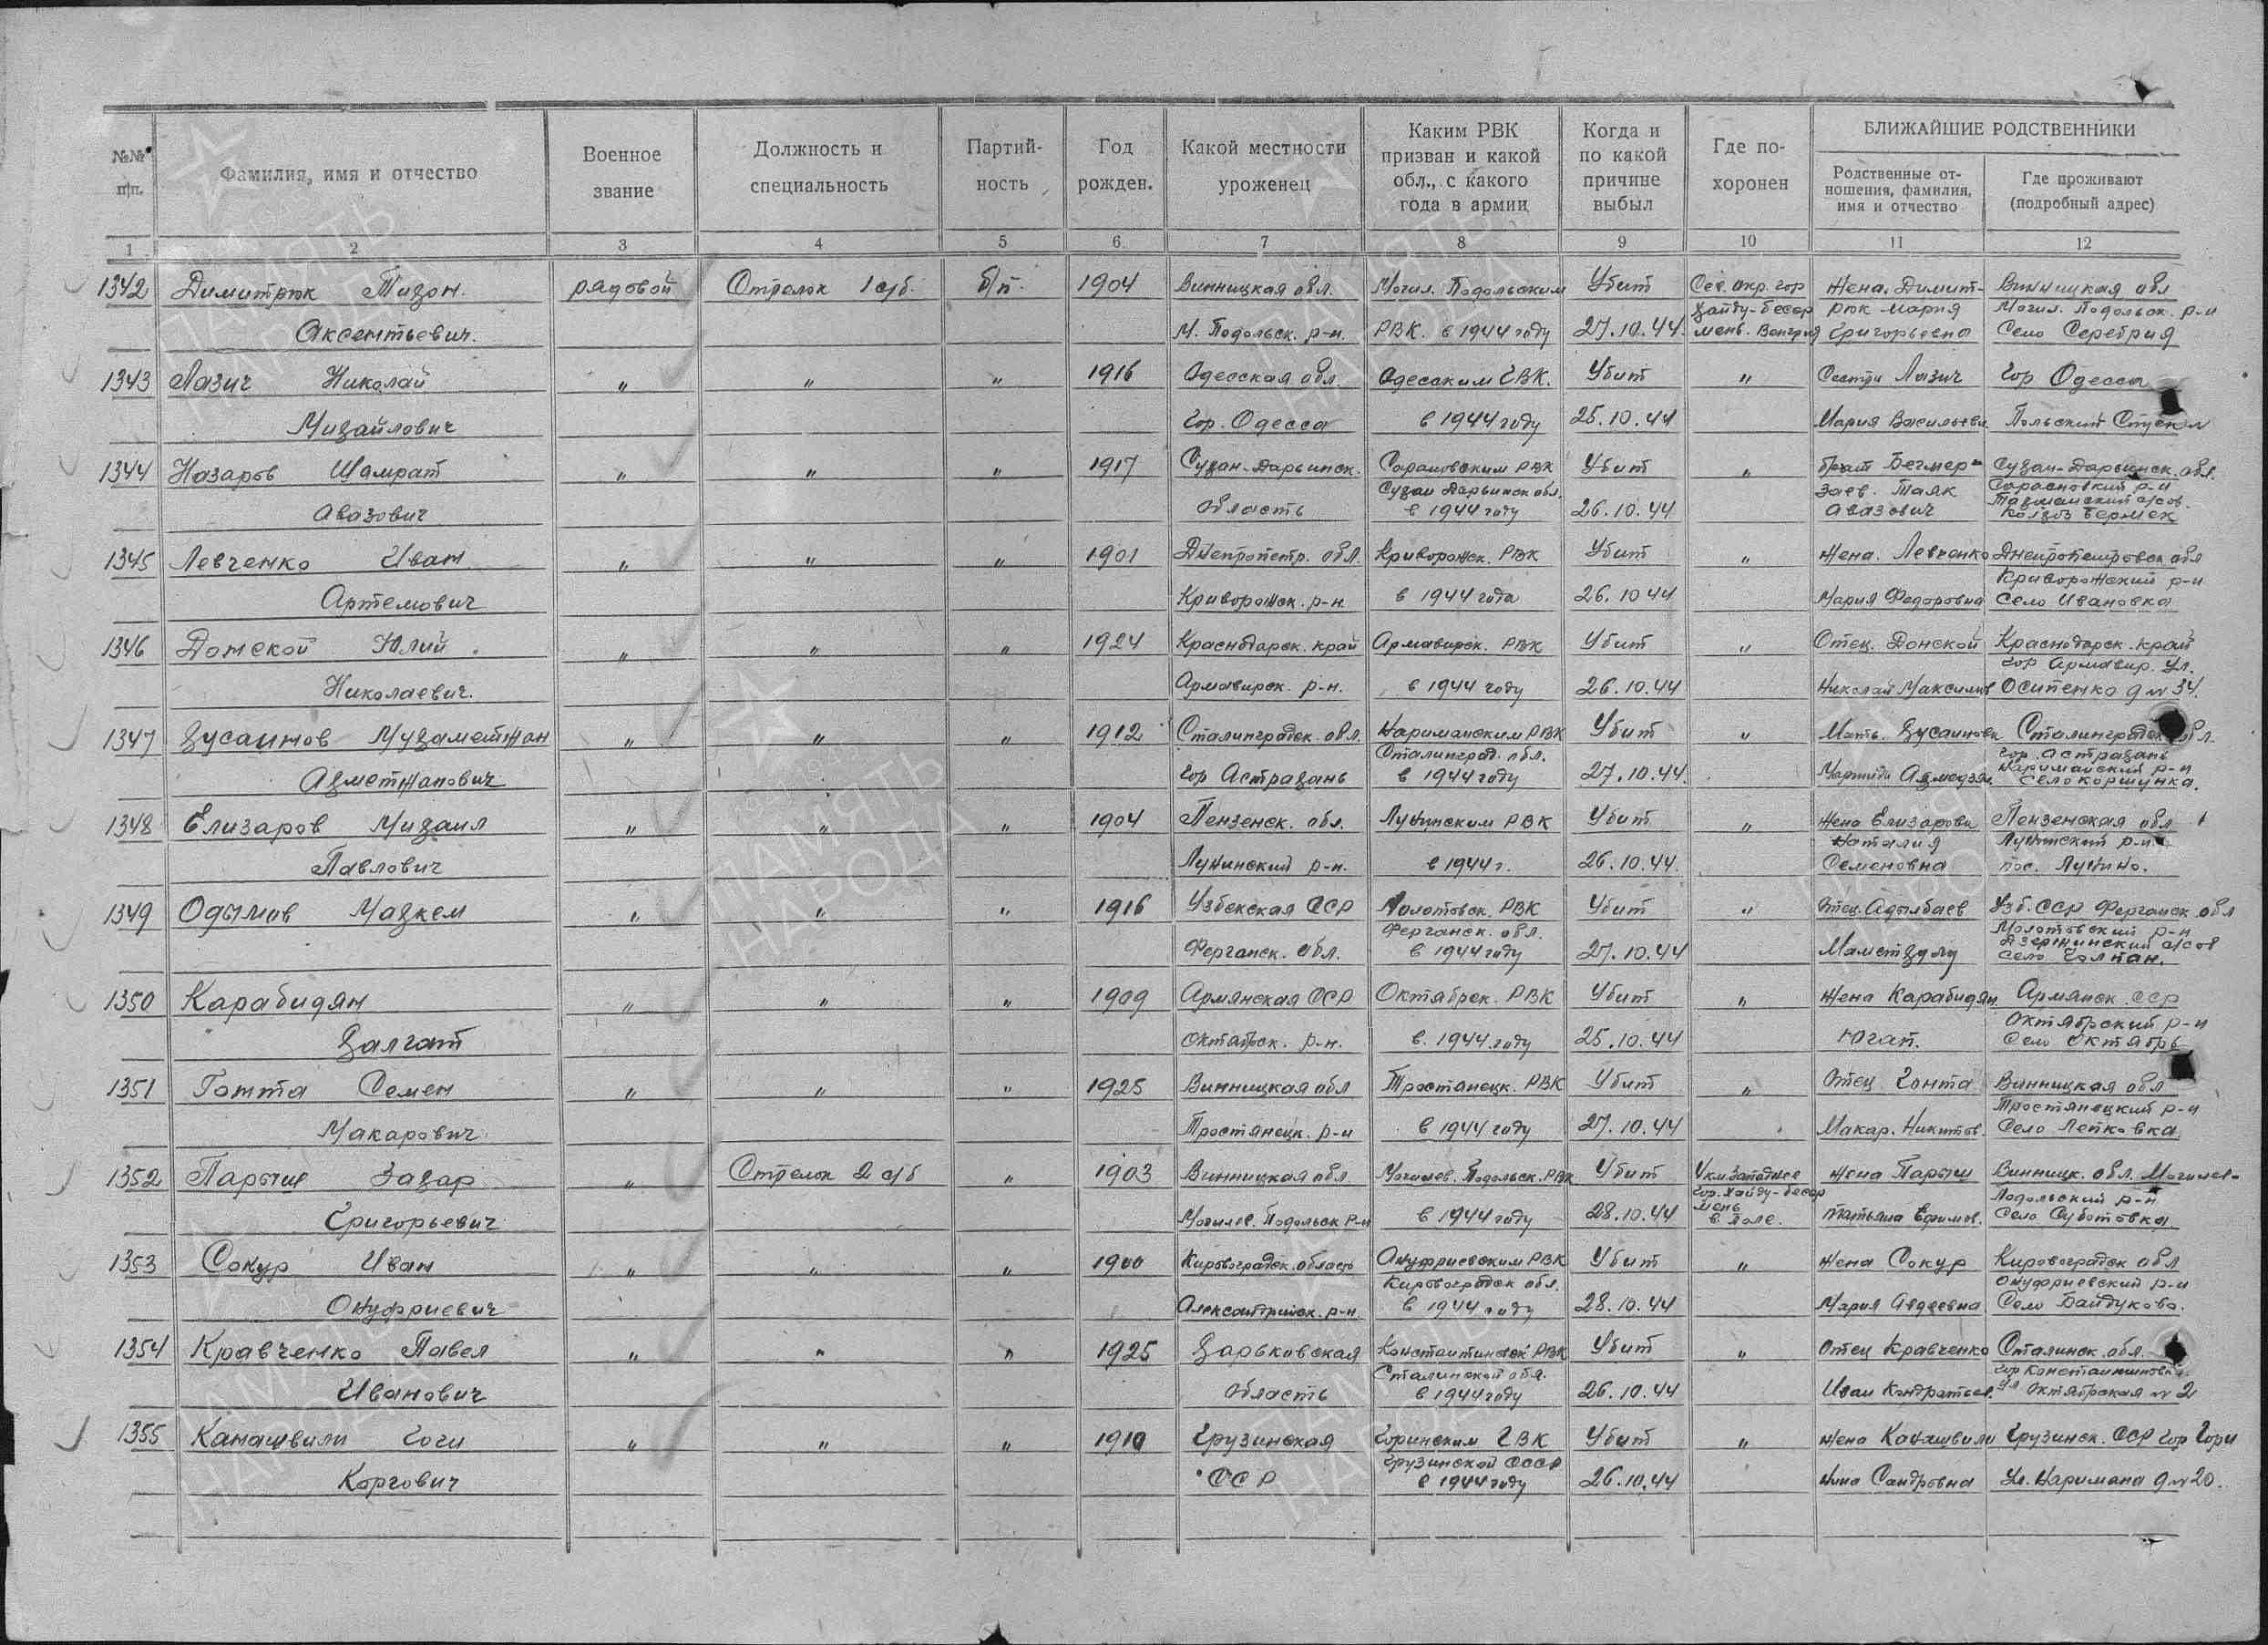 №№ п/п.
Фамилия, имя и отчество
Военное звание
Должность и специальность
Партий-ность
Год рожден.
Какой местности уроженец
Каким РВК призван и какой обл., с какого года в армии
Когда и по какой причине выбыл
Где по-хоронен
БЛИЖАЙШИЕ РОДСТВЕННИКИ
Родственные от-ношения, фамилия, имя и отчество
Где проживают (подробный адрес)
1 2 3 4 5 6 7 8 9 10 11 12
1342 Димитрюк Тихон рядовой Стрелок 1 с/б. б/п. 1904 Винницкая обл. Могил. Подольским Убит Сев. окр. гор Жена. Димит- Винницкая обл
Хайду-бесер рюк Мария Могил. Подольск. р-н
Аксентьевич. М. Подольск. р-н. РВК. в 1944 году 27.10.44. мень. Венгрия Григорьевна Село Серебрия
1343 Лазич Николай " " " 1916 Одесская обл. Одесским ГВК. Убит " Сестра Лазич Гор Одесса
Михайлович Гор. Одесса в 1944 году 25.10.44 Мария Васильевн Польский Спуск
1344 Назаров Шамрат " " " 1917 Сухан-Дарьинск. РВК Убит " брат Бегмер- Сухан-Дарьинск. обл.
Сухан Дарьинск обл. заев. Таяк р-н
Авазович область в 1944 году 26.10.44 Авазович колхоз Бермек
1345 Левченко Иван " " " 1901 Днепропетр. обл. Криворожск. РВК Убит " Жена. Левченко Днепропетровск обл
Криворожский р-н
Артемович Криворожск. р-н. в 1944 года 26.10 44 Мария Федоровна Село Ивановка
1346 Донской Юлий " " " 1924 Краснодарск. край Армавирск. РВК Убит " Отец. Донской Краснодарск. край
гор Армавир. ул.
Николаевич. Армавирск. р-н. в 1944 году 26.10.44 Николай Максимов Осипенко д № 34.
1347 Хусаинов Мухаметжан " " " 1912 Сталинградск. обл. Наримановским РВК Убит " Мать. Хусаинова Сталинградск обл.
Сталинград. обл. гор. Астрахань
Нариманский р-н
Ахметжанович гор Астрахань в 1944 году 27.10.44. село коршунка.
1348 Елизаров Михаил " " " 1904 Пензенск. обл. Лунинским РВК Убит " Жена Елизарова Пензенская обл
Наталия Лунинский р-н.
Павлович Лунинский р-н. в 1944 г. 26.10.44. Семеновна пос. Лунино.
1349 Одылов Махкем " " " 1916 Узбекская ССР Молотовск. РВК Убит " Отец. Адылбаев Узб. ССР Ферганск обл
Ферганск. обл. Молотовский р-н
Дзержинский с/сов
Ферганск. обл. в 1944 году 27.10.44 село Чолпан.
1350 Карабидян " " " 1909 Армянская ССР Октябрск. РВК Убит " Жена Карабидян Армянск. ССР
Октябрский р-н
Халгат Октябрск. р-н. в. 1944 году 25.10.44 Югап. Село Октябрь
1351 Гонта Семен " " " 1925 Винницкая обл Тростянецк. РВК Убит " Отец Гонта Винницкая обл
Тростянецкий р-н
Макарович Тростянецк. р-н в 1944 году 27.10.44 Макар. Никитов. Село Лепковка.
1352 Парыш Захар " Стрелок 2 с/б " 1903 Винницкая обл Могилев. Подольск. РВК Убит 4 км западнее Жена Парыш Винницк. обл. Могилев-
гор. Хайду-бесер Подольский р-н
мень
Григорьевич Могилев. Подольск р-н в 1944 году 28.10.44 в поле. Татьяна Ефимов. Село Суботовка
1353 Сокур Иван " " " 1900 Кировоградск. область Онуфриевским РВК Убит " Жена Сокур Кировоградск обл
Кировоградск обл. Онуфриевский р-н
Онуфриевич Александрийск. р-н. в 1944 году 28.10.44 Мария Авдеевна Село Байдуково.
1354 Кравченко Павел " " " 1925 Харьковская Константиновск РВК Убит " Отец Кравченко Сталинск. обл.
Сталинской обл. гор Константиновка
Иванович область в 1944 году 26.10.44 Иван Кондратьев. ул Октябрская № 2
1355 Канашвили Гоги " " " 1910 Грузинская Горинским ГВК Убит " Жена Канашвили Грузинск. ССР гор Гори
Грузинской СССР
Коргович ССР в 1944 году 26.10.44 Нина Сандровна Ул. Наримана д № 20.
ПАМЯТЬ НАРОДА